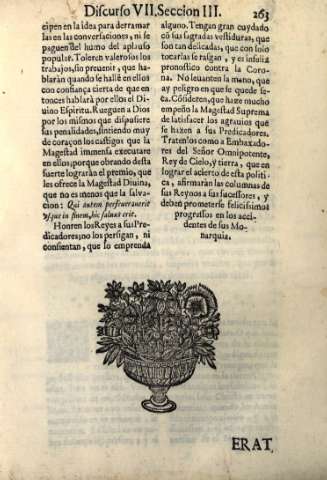 Discurso VII. Seccion III. 263
cipen en la idea para derramar
las en las conversaciones, ni se
paguen del humo del aplauso
popular. Toleren valerosos los
trabajos, sin prevenir, que ha-
blaràn quando se hallẽ en ellos
con confiança cierta de que en-
tonces hablarà por ellos el Di-
uino Espiritu. Rueguen a Dios
por los mismos que dispusiere
sus penalidades, sintiendo muy
de coraçon los castigos que la
Magestad immensa executare
en ellos; porque obrando desta
suerte lograràn el premio, que
les ofrece la Magestad Diuina,
que no es menos que la salva-
cion: Qui autem perseuerauerit
vsque in finem, hic saluus erit.
Honren los Reyes a sus Pre-
dicadores; no los persigan, ni
consientan, que lo emprenda
alguno. Tengan gran cuydado
cõ sus sagradas vestiduras, que
son tan delicadas, que con solo
tocarlas se rasgan, y es infalia
pronostico contra la Coro-
na. No leuanten la mano, que
ay peligro en que se quede se-
ca. Cõsideren, que haze mucho
empeño la Magestad Suprema
de satisfacer los agrauios que
se hazen a sus Predicadores.
Tratenlos como a Embaxado-
res del Señor Omnipotente,
Rey de Cielo, y tierra, que en
lograr el acierto de esta politi-
ca, afirmaràn las columnas de
sus Reynos a sus sucessores, y
deben prometerse felicissimos
progressos en los acci-
dentes de sus Mo-
narquia.
ERAT.